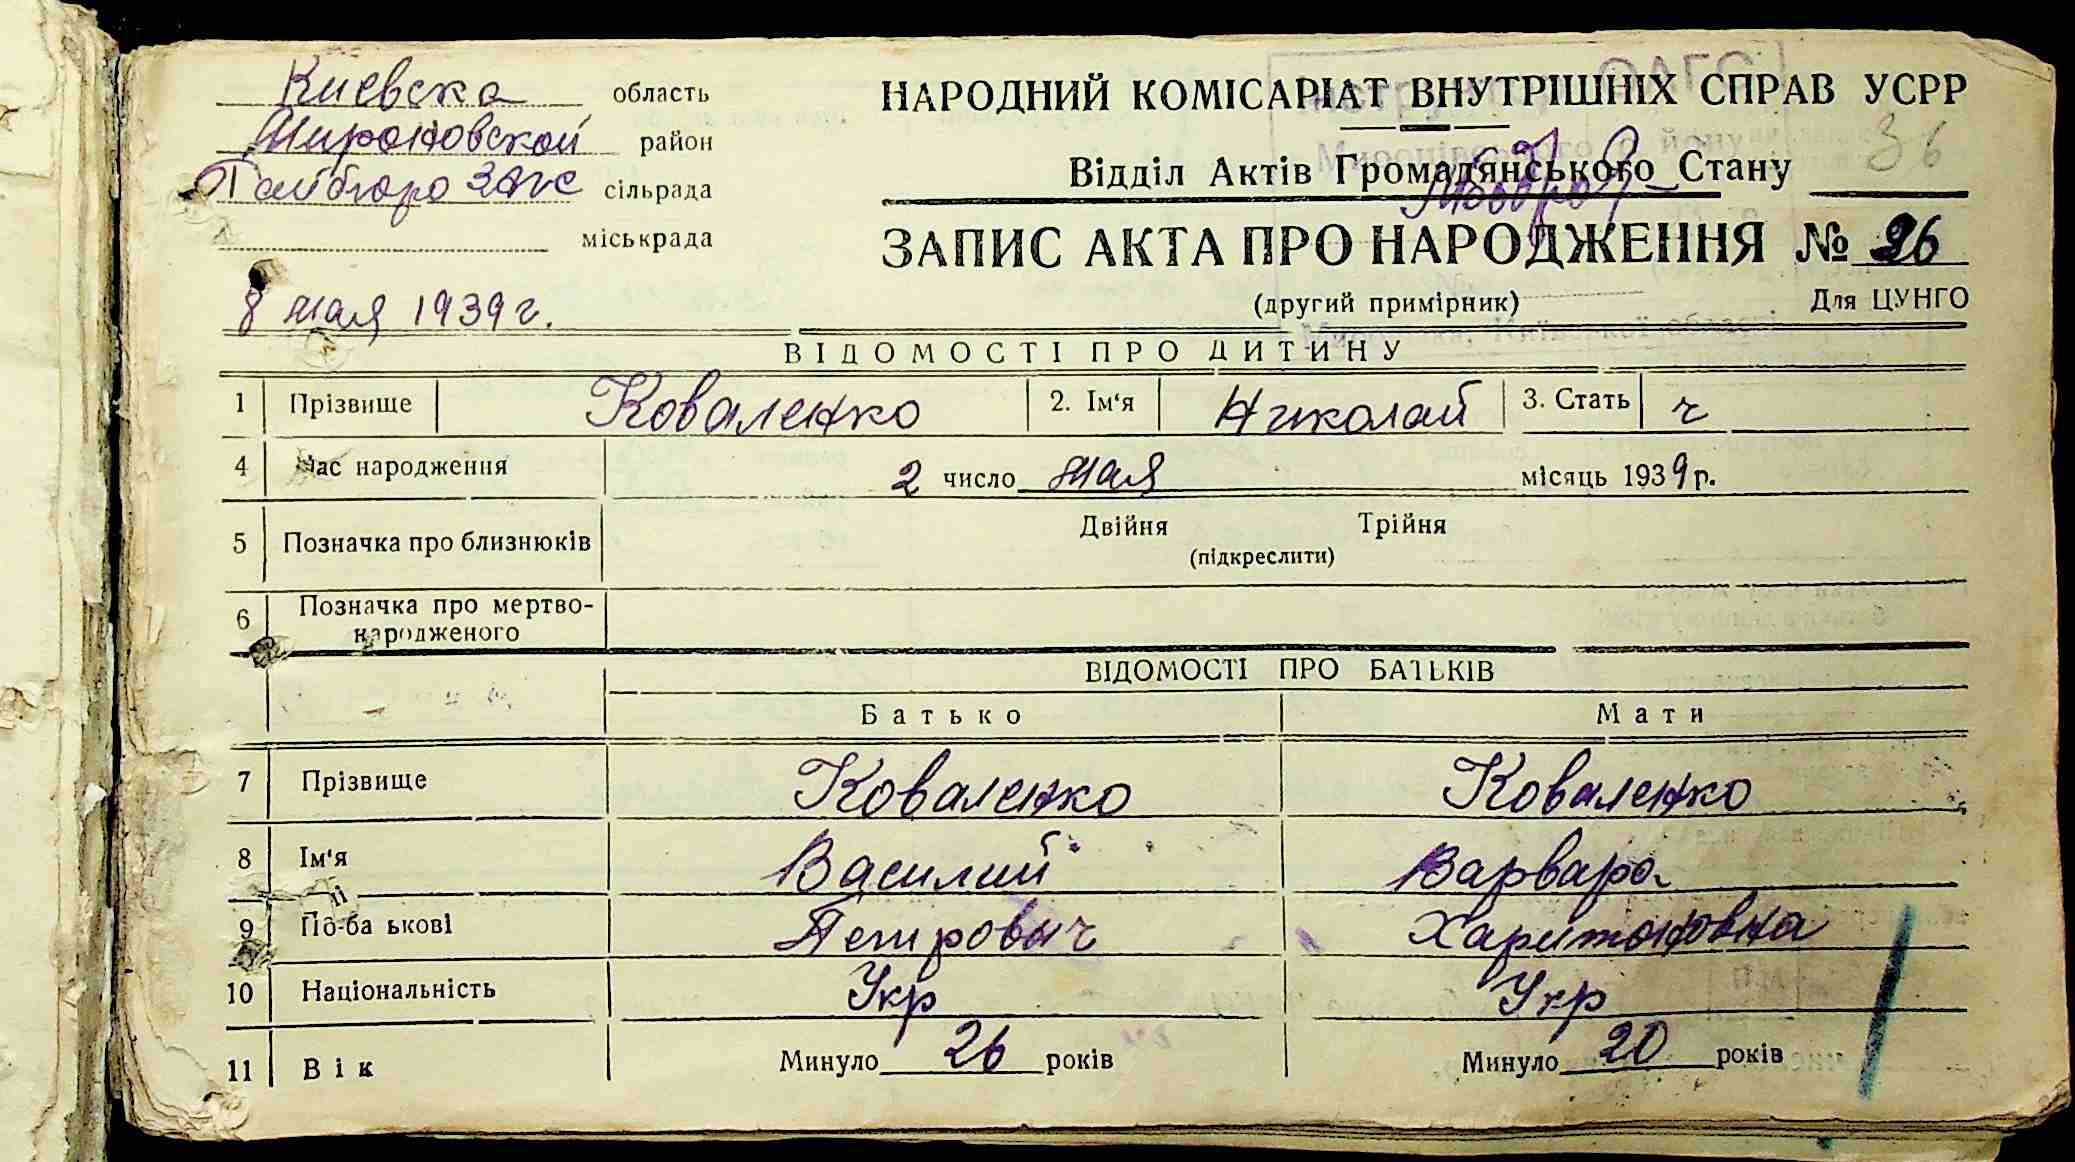 Киевска область
Мироновской район
Райбюро Загс сільрада
міськрада
8 мая 1939 г.
НАРОДНИЙ КОМІСАРІАТ ВНУТРІШНІХ СПРАВ УСРР
Відділ Актів Громадянського Стану 36
ЗАПИС АКТА ПРО НАРОДЖЕННЯ № 26
(другий примірник) Для ЦУНГО
ВІДОМОСТІ ПРО ДИТИНУ
1 Прізвище Коваленко 2. Ім'я Николай 3. Стать ч
4 Час народження 2 число мая місяць 1939 р.
5 Позначка про близнюків Двійня Трійня
(підкреслити)
6 Позначка про мертво-
народженого
ВІДОМОСТІ ПРО БАТЬКІВ
Батько Мати
7 Прізвище Коваленко Коваленко
8 Ім'я Василий Варвара
9 По-ба ькові Петрович Харитоновна
10 Національність Укр Укр
11 Вік Минуло 26 років Минуло 20 років